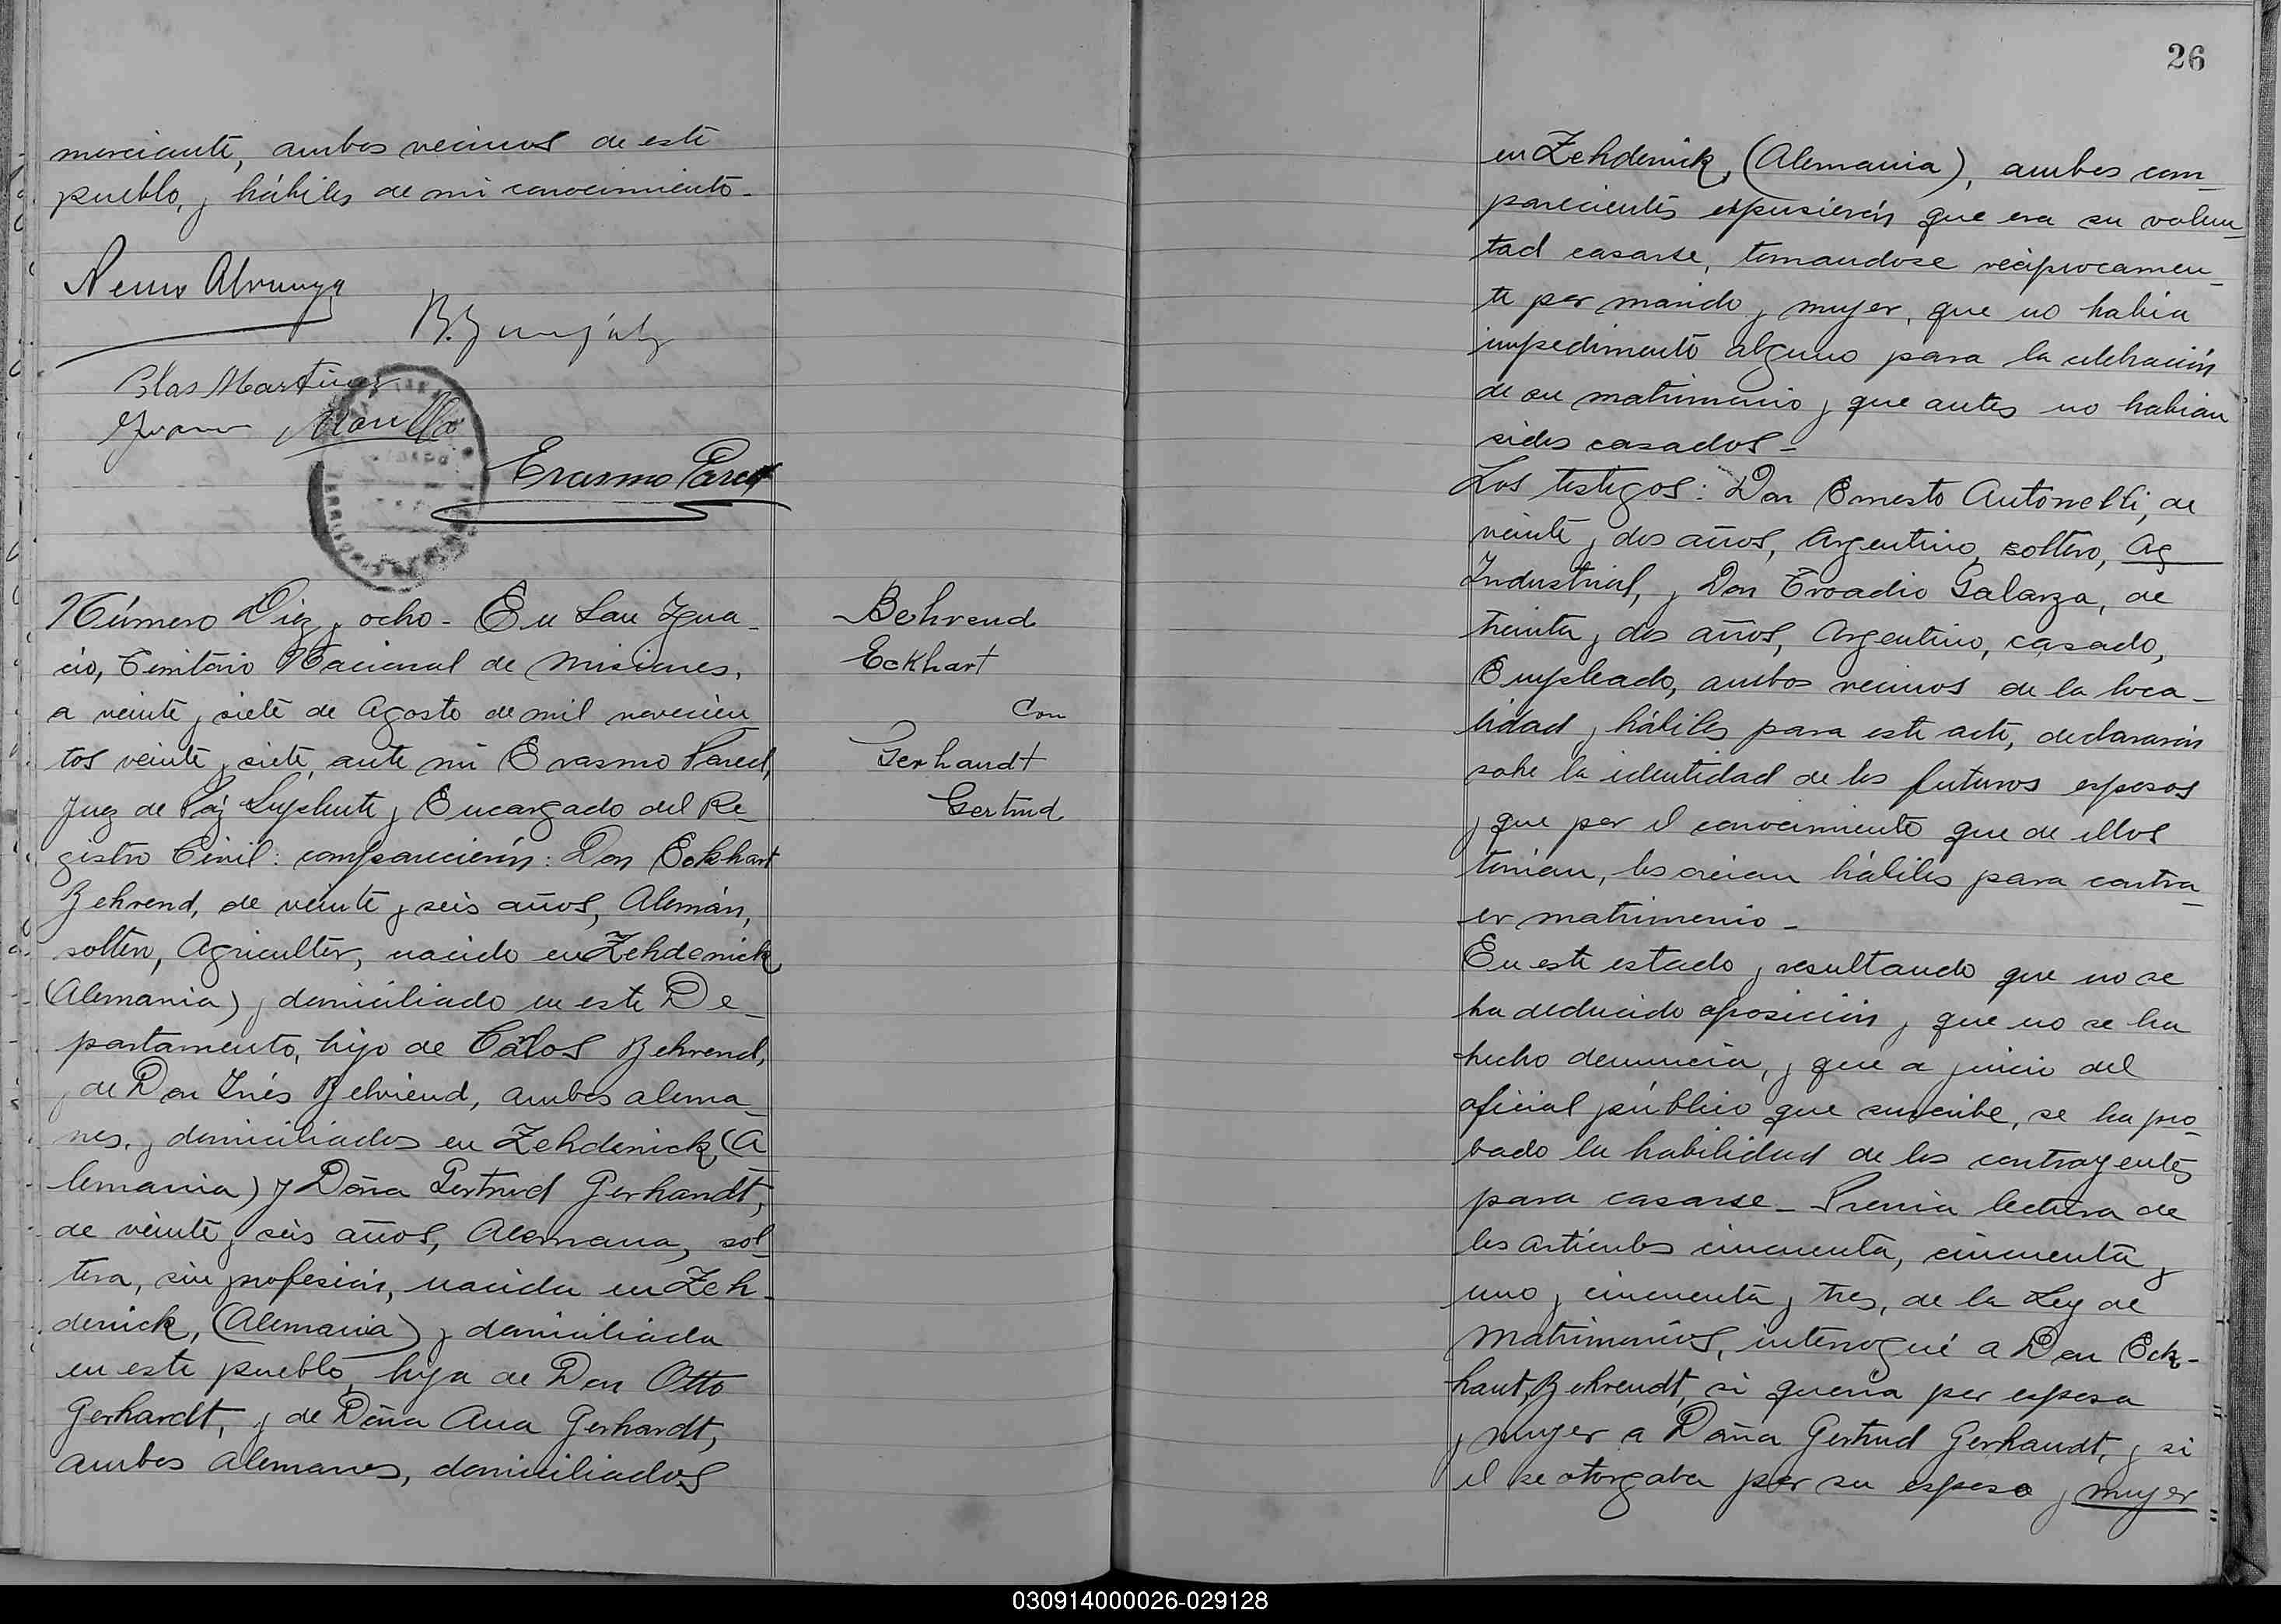 merciante, ambos vecinos de este
pueblo, y hábiles de mi conocimiento-
Blas Martinez
Erasmo Pared
Número Diez y ocho- En San Igna-
cio, Território Nacional de Misiones,
a veinte y siete de Agosto de mil novecien
tos veinte y siete, ante mi Erasmo Pared,
Juez de Páz Suplente y Encargado del Re_
gistro Civil: comparecierón: Don Eckhart
Behrend, de veinte y seis años, Alemán,
soltero, Agricultor, nacido en Zehdenick,
(Alemania) y domiciliado en este De_
partamento, hijo de Cárlos Behrend,
y de Don Inés Behriend, ambos alema_
nes, y domiciliados en Zehdenick, (A
lemania) y Doña Gertrud Gerhandt,
de veinte y seis años, Alemana, sol_
tera, sin profesión, nacida en Zeh_
denick, (Alemania) y domiciliada
en este pueblo, hija de Don Otto
Gerhardt, y de Doña Ana Gerhardt,
ambos alemanes, domiciliados
Behrend
Eckhart
Con
Gerhandt
Gertrud
26
en Zehdenick, (Alemania), ambos com_
parecientes expusierón que era su volun_
tad casarse, tomandose reciprocamen_
te por marido y mujer, que no habia
impedimento alguno para la celebración
de su matrimonio y que antes no habian
sidos casados-
Los testigos: Don Ernesto Antonelli, de
veinte y dos años, Argentino, soltero, Ag
Industrial, y Don Troadio Galarza, de
treinta y dos años, Argentino, casado,
Empleado, ambos vecinos de la loca_
lidad y hábiles para este acto, declararón
sobre la identidad de los futuros esposos
y que por el conocimiento que de ellos
tenian, los creian hábiles para contra_
er matrimonio-
En este estado y resultando que no se
ha deducido oposición y que no se ha
hecho denuncia, y que a juicio del
oficial público que suscribe, se ha pro_
bado la habilidad de los contrayentes
para casarse- Previa lectura de
los artículos cincuenta, cincuenta y
uno y cincuenta y tres, de la Ley de
Matrimonios, interrogué a Don Eck-
hart, Behrendt, si queria por esposa
y mujer a Doña Gertrud Gerhandt, y si
el se otorgaba por su esposo y mujer
030914000026-029128